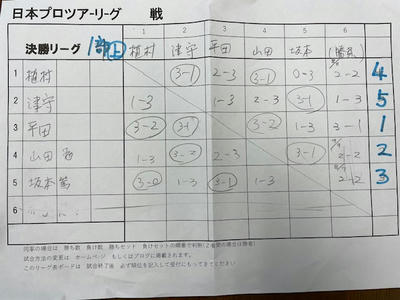 日本プロツアーリーグ 戦
決勝リーグ 1部上
1 2 3 4 5 6
植村 津守 平田 山田 坂本 (勝敗)
1 植村 3-1 2-3 3-1 0-3 2-2 4
2 津守 1-3 1-3 2-3 3-1 1-3 5
3 平田 3-2 3-1 3-2 1-3 3-1 1
4 山田 1-3 3-2 2-3 3-1 2-2 2
5 坂本 篤 3-0 1-3 3-1 1-3 2-2 3
6
同率の場合は 勝ち数 負け数 勝ちセット 負けセットの順番で判断(2者間の場合は勝者)
試合方法の変更は ホームページ もしくはブログに掲載されます。
このリーグ表ボードは 試合終了後 必ず順位を記入して受付にもってきてください